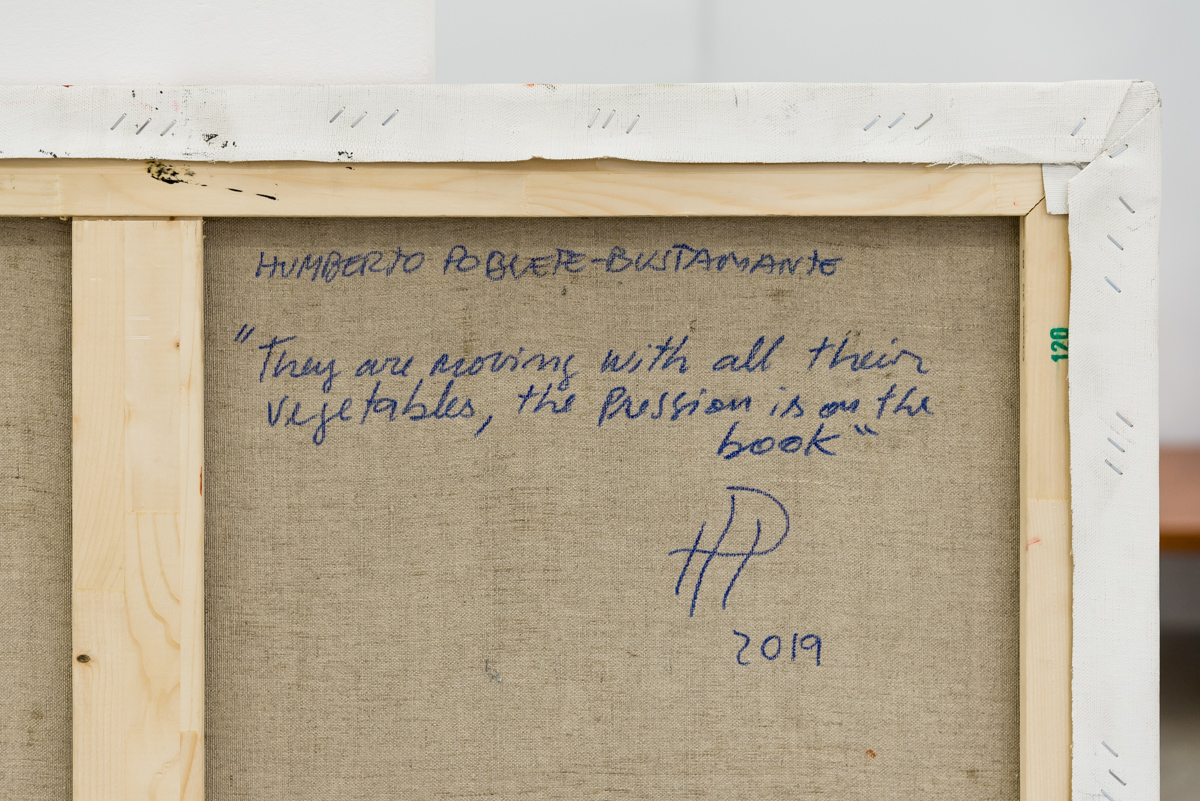 HUMBERTO POBLETE-BUSTAMANTE
"They are moving with all their
vegetables, the Pression is on the
book"
HP
2019
120